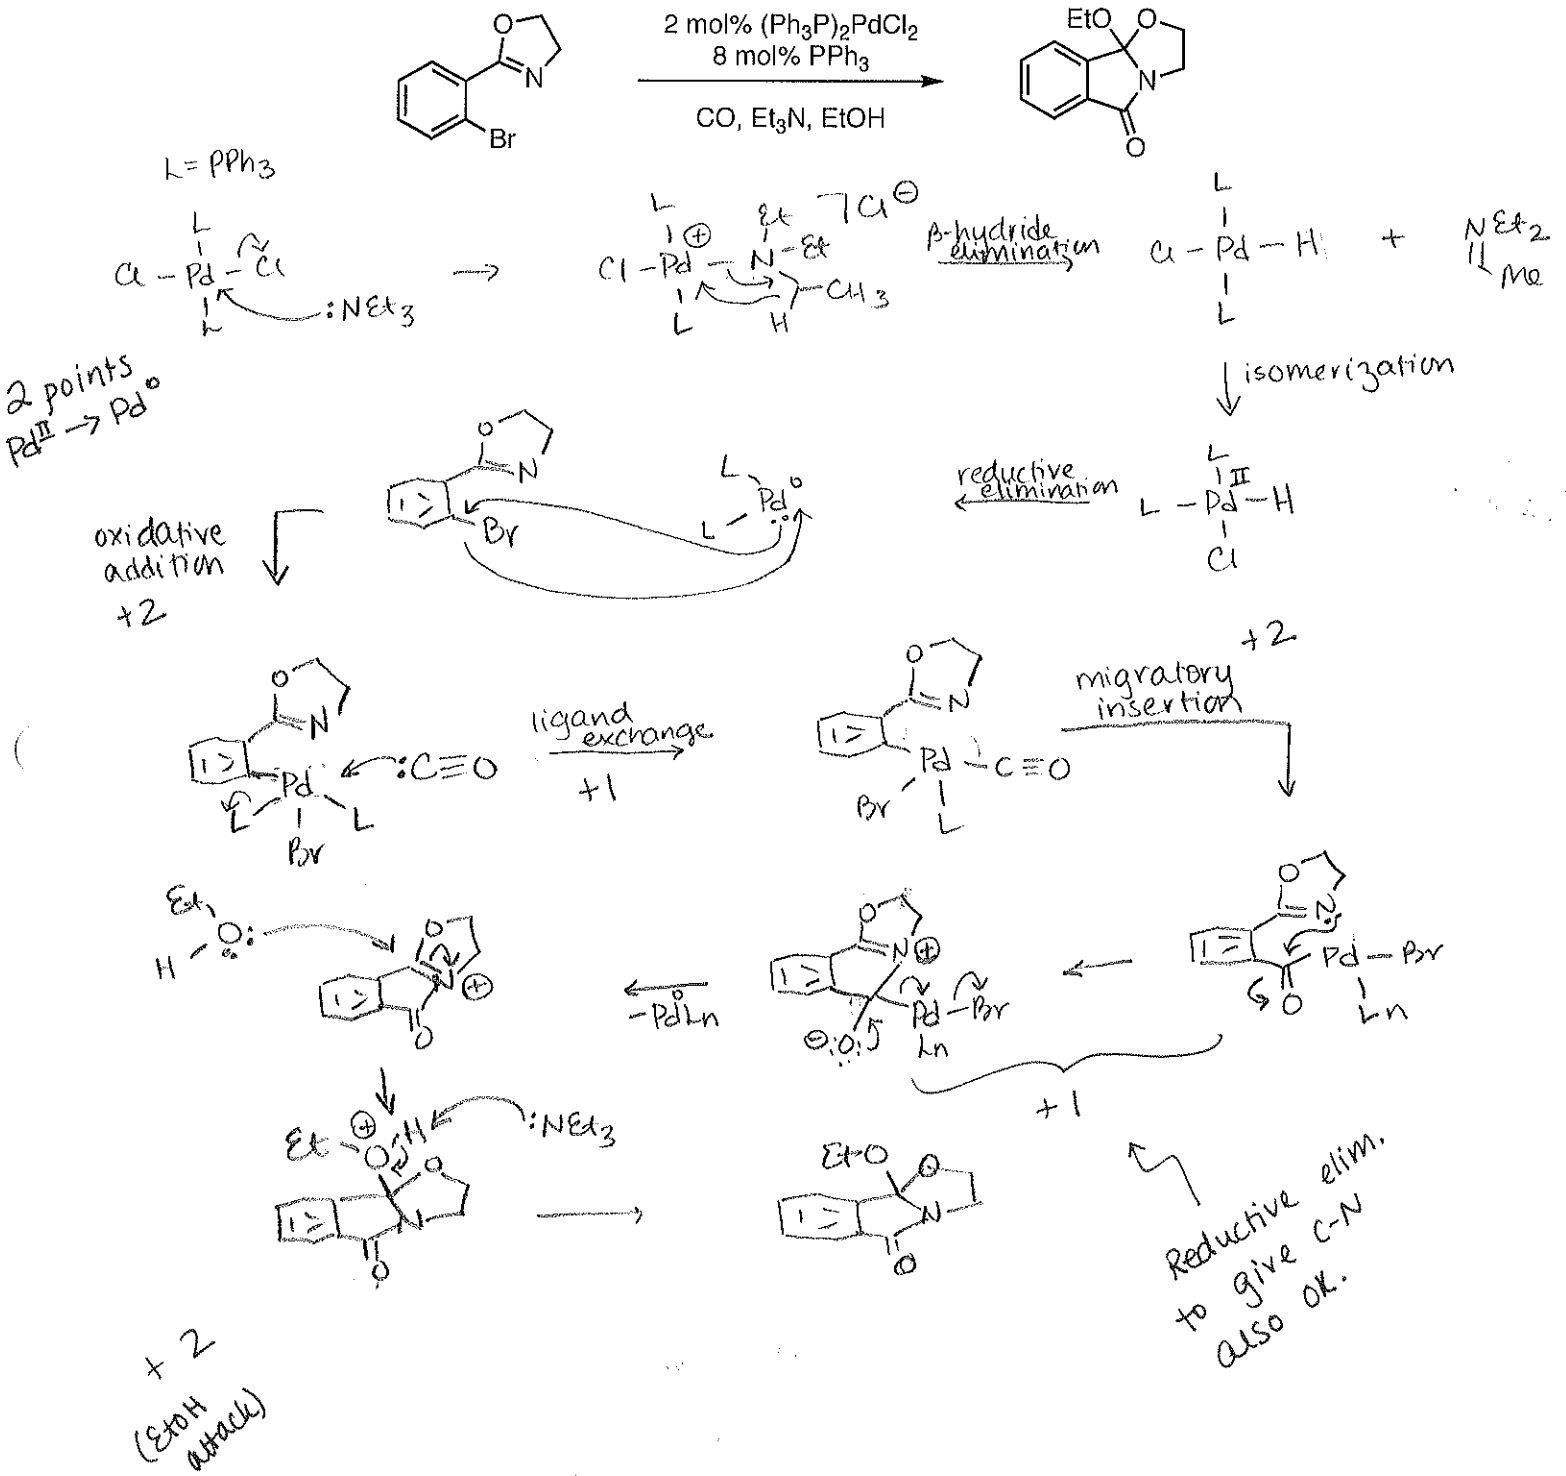 O
N
Br
2 mol% (Ph3P)2PdCl2
8 mol% PPh3
CO, Et3N, EtOH
EtO O
N
O
L = PPh3
L
Cl - Pd - Cl
L
:NEt3
→
L
Cl - Pd - N - Et
⊕
Et
L
H
CH3
Cl⊖
β-hydride
elimination
L
Cl - Pd - H
L
+
NEt2
Me
2 points
Pd^II → Pd^0
isomerization
L
L - Pd^II - H
Cl
reductive
elimination
L
Pd^0
L
O
N
Br
oxidative
addition
+2
O
N
Pd
L
L
Br
:C≡O
ligand
exchange
+1
O
N
Pd - C≡O
Br
L
+2
migratory
insertion
O
N
Pd - Br
O
Ln
O
N⊕
Pd - Br
⊖:O:
Ln
+1
-Pd^0Ln
Et
H - O:
O
N⊕
O
Et - O⊕ - H
:NEt3
O
N
O
EtO O
N
O
Reductive elim.
to give C-N
also OK.
+2
(EtOH
attack)